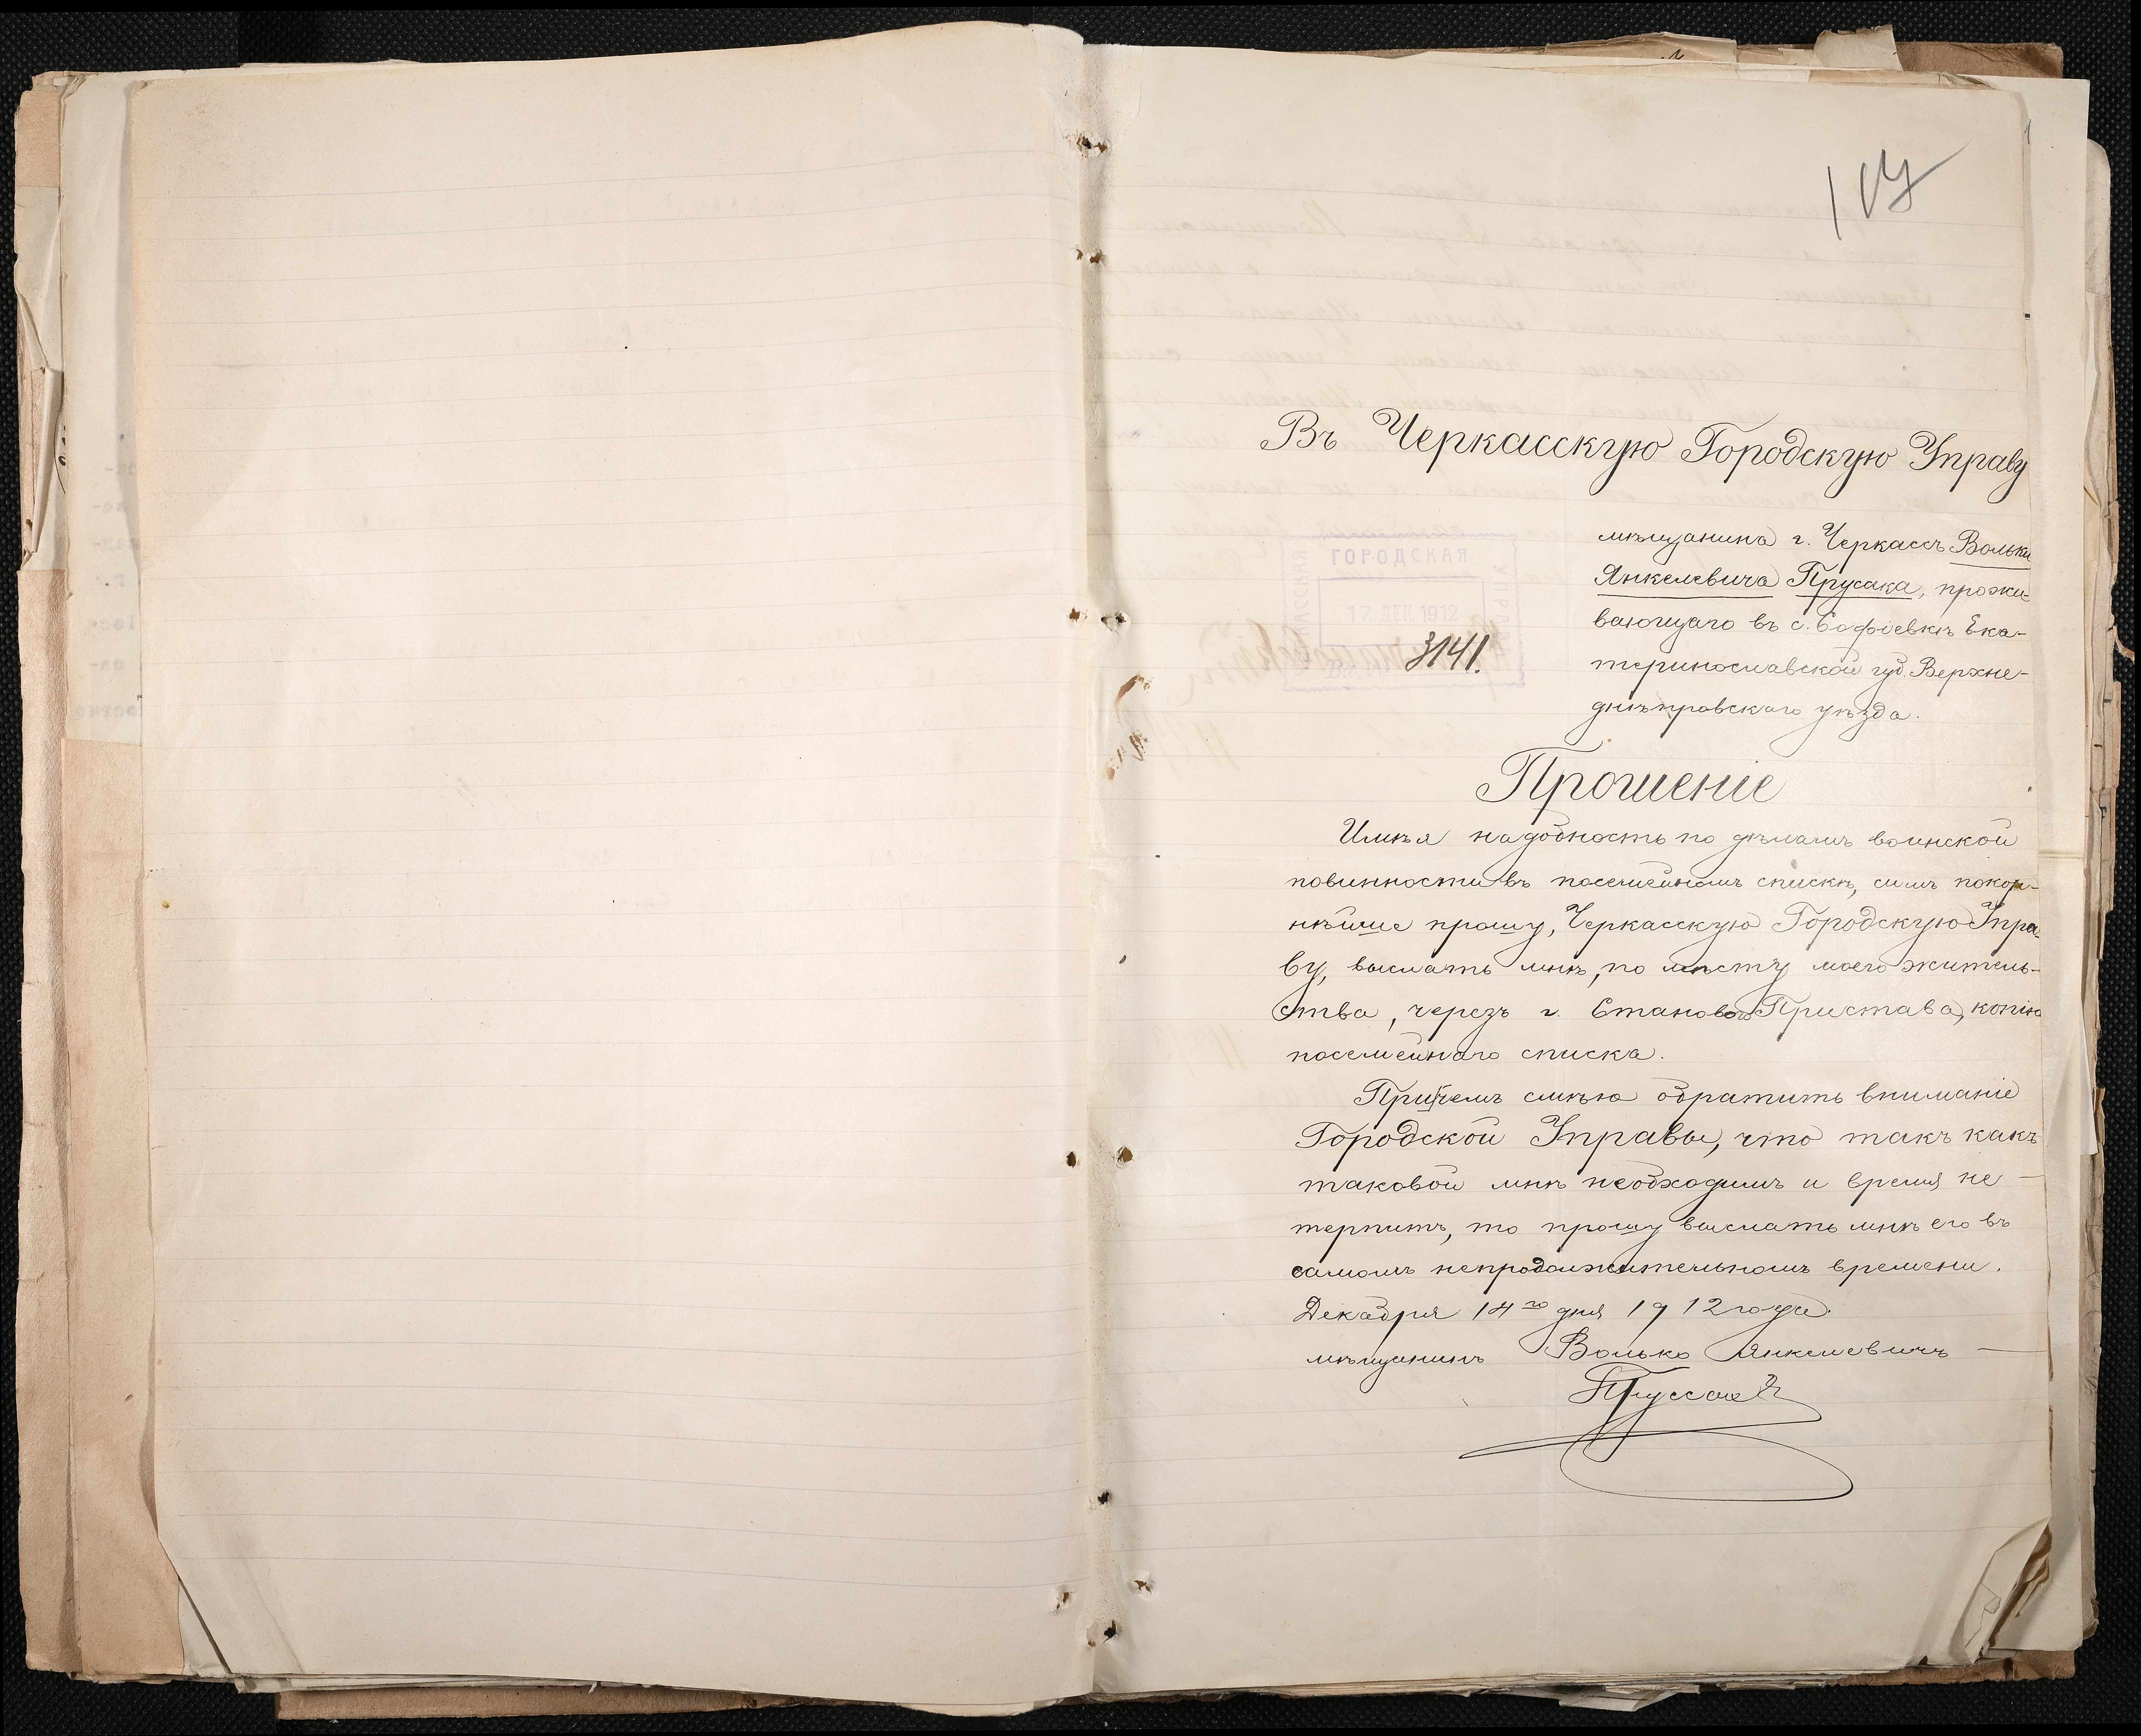 Въ Черкасскую Городскую Управу
мѣщанина г. Черкассъ Вольки
Янкелевича Прусака, прожи-
вающаго въ с. Софіевкѣ Ека-
теринославской губ. Верхне-
днѣпровскаго уѣзда.
ГОРОДСКАЯ
17 ДЕК 1912
3141.
Прошеніе
Имѣя надобность по дѣламъ воинской
повинности въ посемейномъ спискѣ, симъ покор-
нѣйше прошу, Черкасскую Городскую Упра-
ву, выслать мнѣ, по мѣсту моего житель-
ства, черезъ г. Станового Пристава, копію
посемейнаго списка.
Причемъ смѣю обратить вниманіе
Городской Управы, что такъ какъ
таковой мнѣ необходимъ и время не
терпитъ, то прошу выслать мнѣ его въ
самомъ непродолжительномъ времени.
Декабря 14го дня 1912 года.
мѣщанинъ Волько Янкелевичъ
Пруссакъ